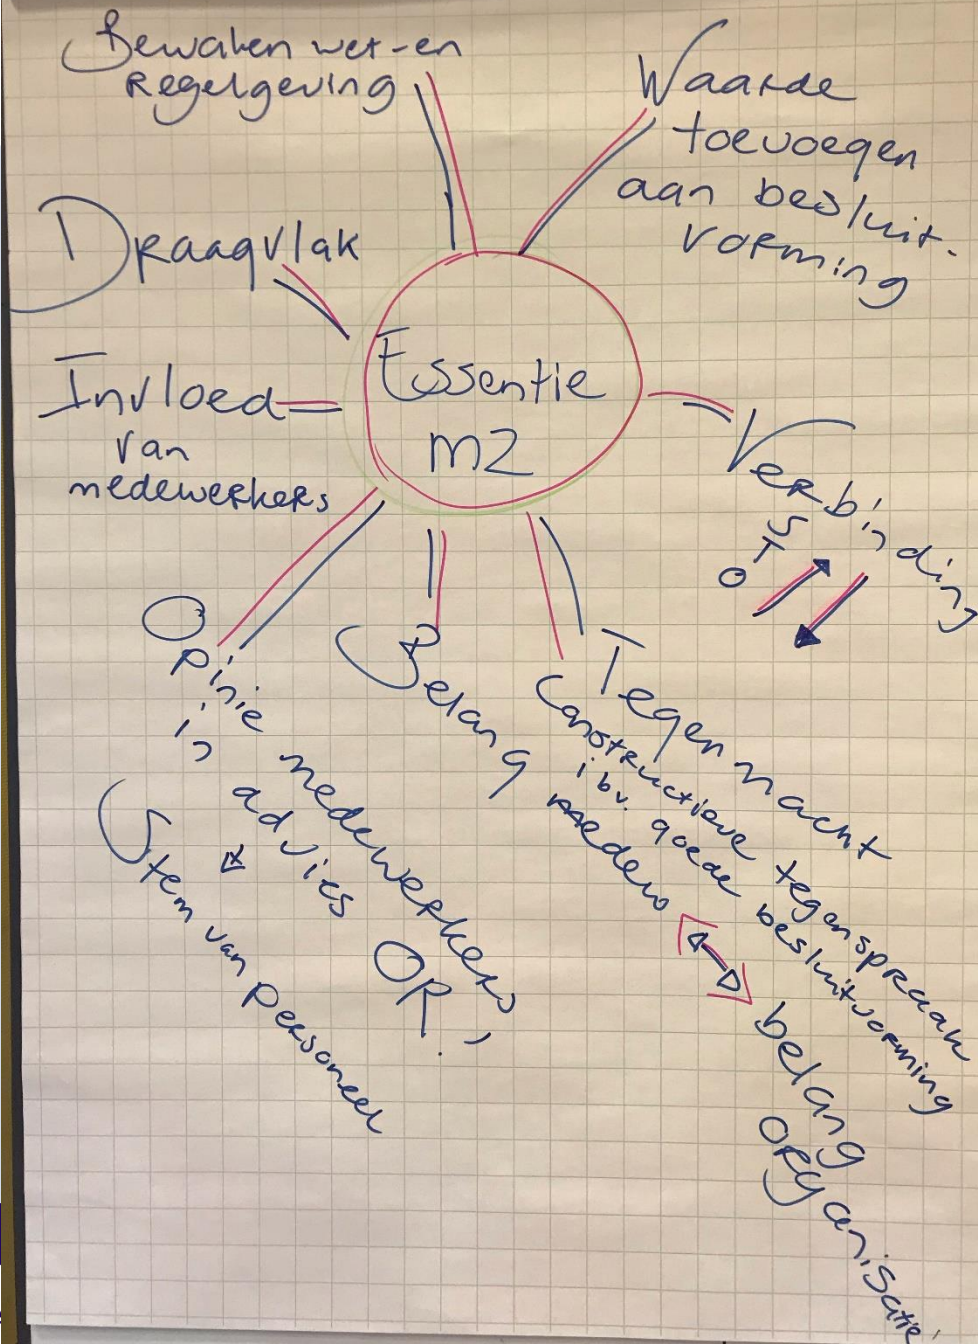 Bewaken wet-en
Regelgeving
Waarde
toevoegen
aan besluit-
vorming
Draagvlak
Essentie
MZ
Invloed
van
medewerkers
Verbinding
S
T
O
Opinie medewerkers
in advies OR.
Stem van personeel
Belang medew
belang
organisatie
Tegenmacht
Constructieve tegenspraak
i bv. goede besluitvorming